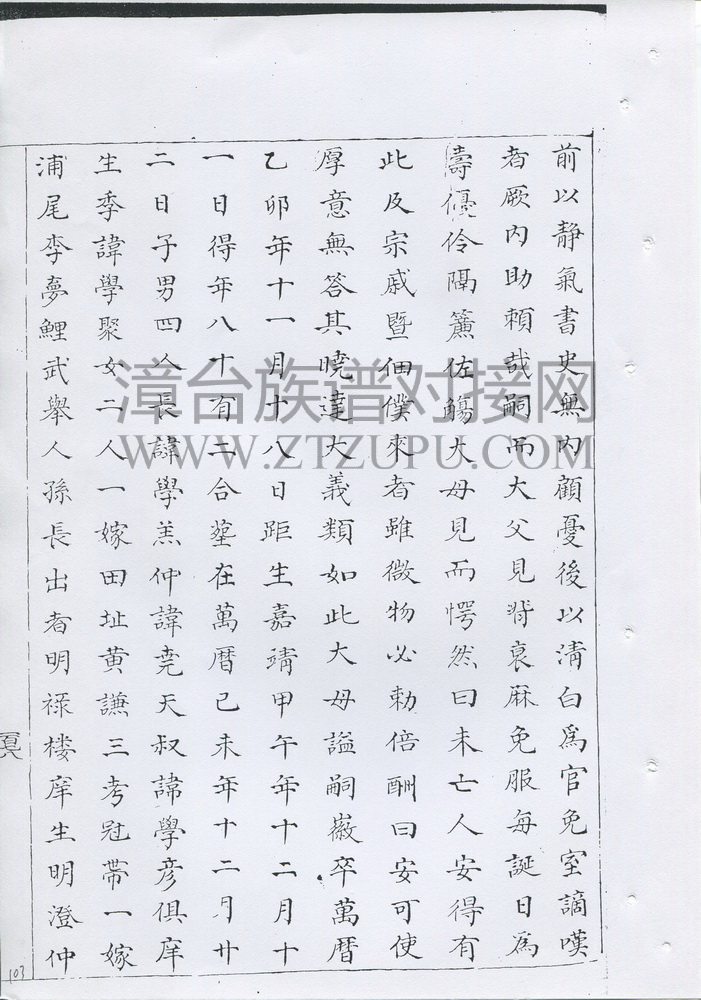 前以靜氣書史無內顧憂後以清白為官免室謫嘆
者厥內助賴哉嗣而大父見背衰麻免服每誕日為
壽優伶隔簾佐觴大母見而愕然曰未亡人安得有
此及宗戚暨佃僕來者雖微物必勅倍酬曰安可使
厚意無答其曉達大義類如此大母謚嗣嶶卒萬曆
乙卯年十一月十八日距生嘉靖甲午年十二月十
一日得年八十有二合塟在萬曆己未年十二月廿
二日子男四人長諱學羔仲諱堯天叔諱學彥俱庠
生季諱學聚女二人一嫁田址黃謙三考冠帶一嫁
浦尾李夢鯉武舉人孫長出者明祿棲庠生明澄仲
103
漳台族谱对接网
WWW.ZTZUPU.COM